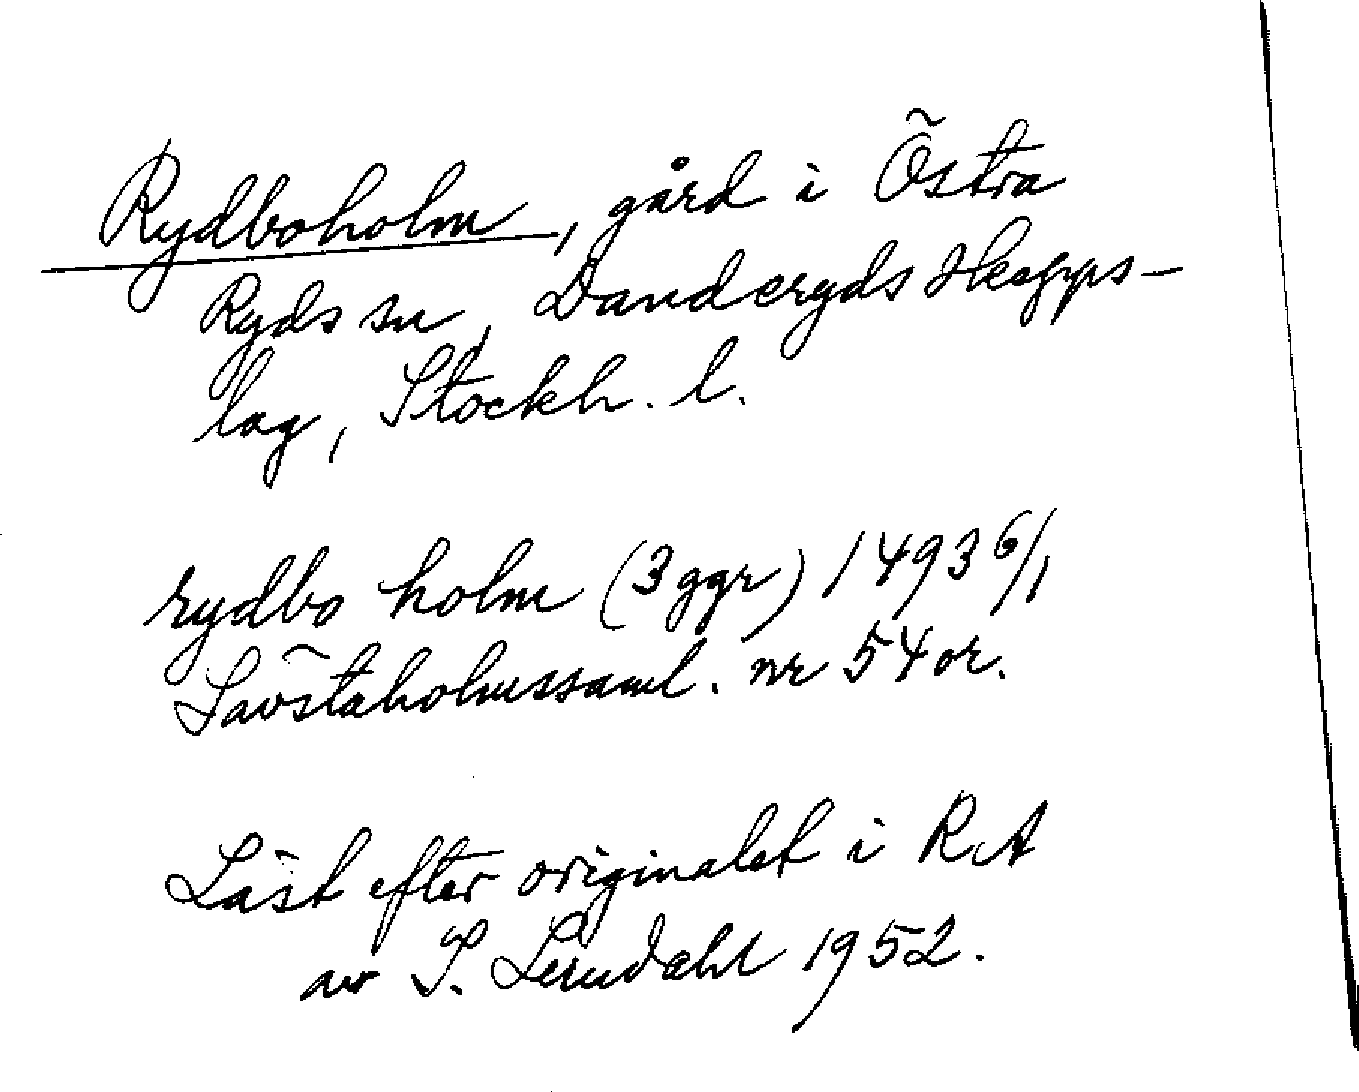 Rydboholm, gård i Östra
Ryds sn, Danderyds skepps-
lag, Stockh. l.
rydbo holm (3 ggr) 1493 6/1
Sävstaholmssaml. nr 54 or.
Läst efter originalet i RA
av S. Lerndahl 1952.